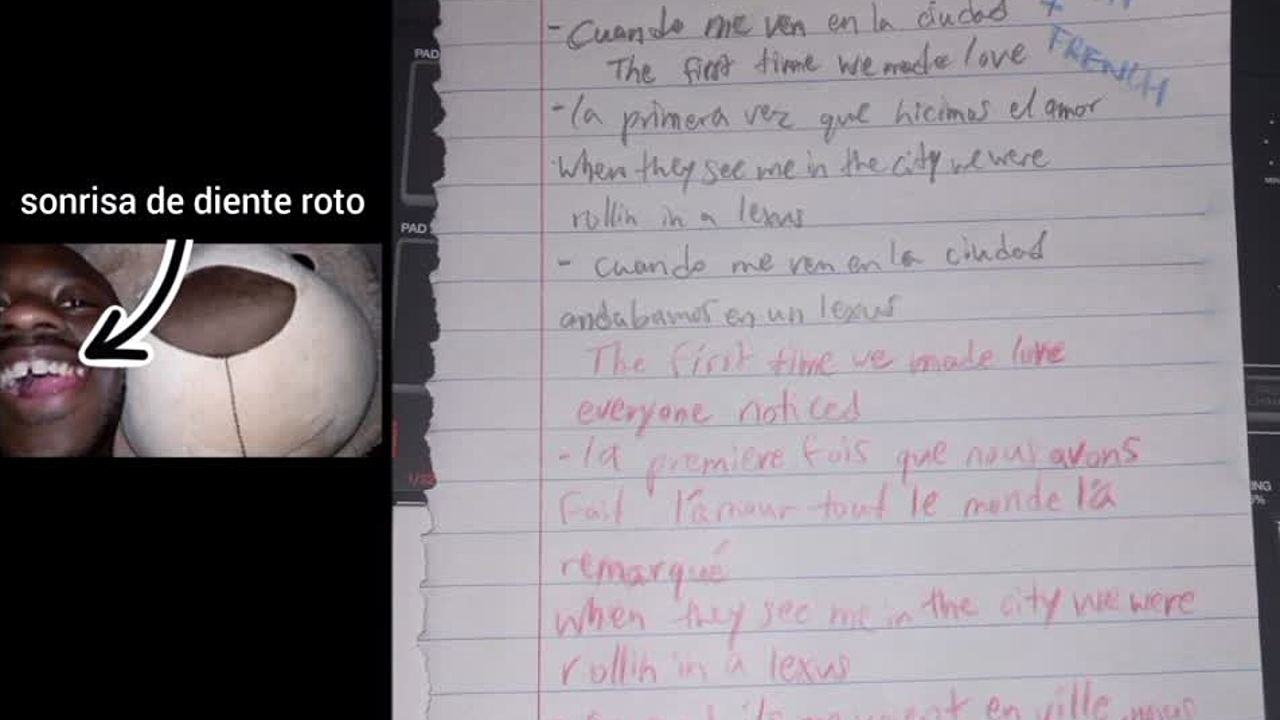 sonrisa de diente roto
PAD
PAD
- Cuando me ven en la ciudad +
FRENCH
The first time we made love
- la primera vez que hicimos el amor
when they see me in the city we were
rollin in a lexus
- cuando me ven en la ciudad
andabamos en un lexus
The first time we made love
everyone noticed
- la premiere fois que nous avons
Fait l'amour tout le monde l'a
remarqué
when they see me in the city we were
rollin in a lexus
en ville